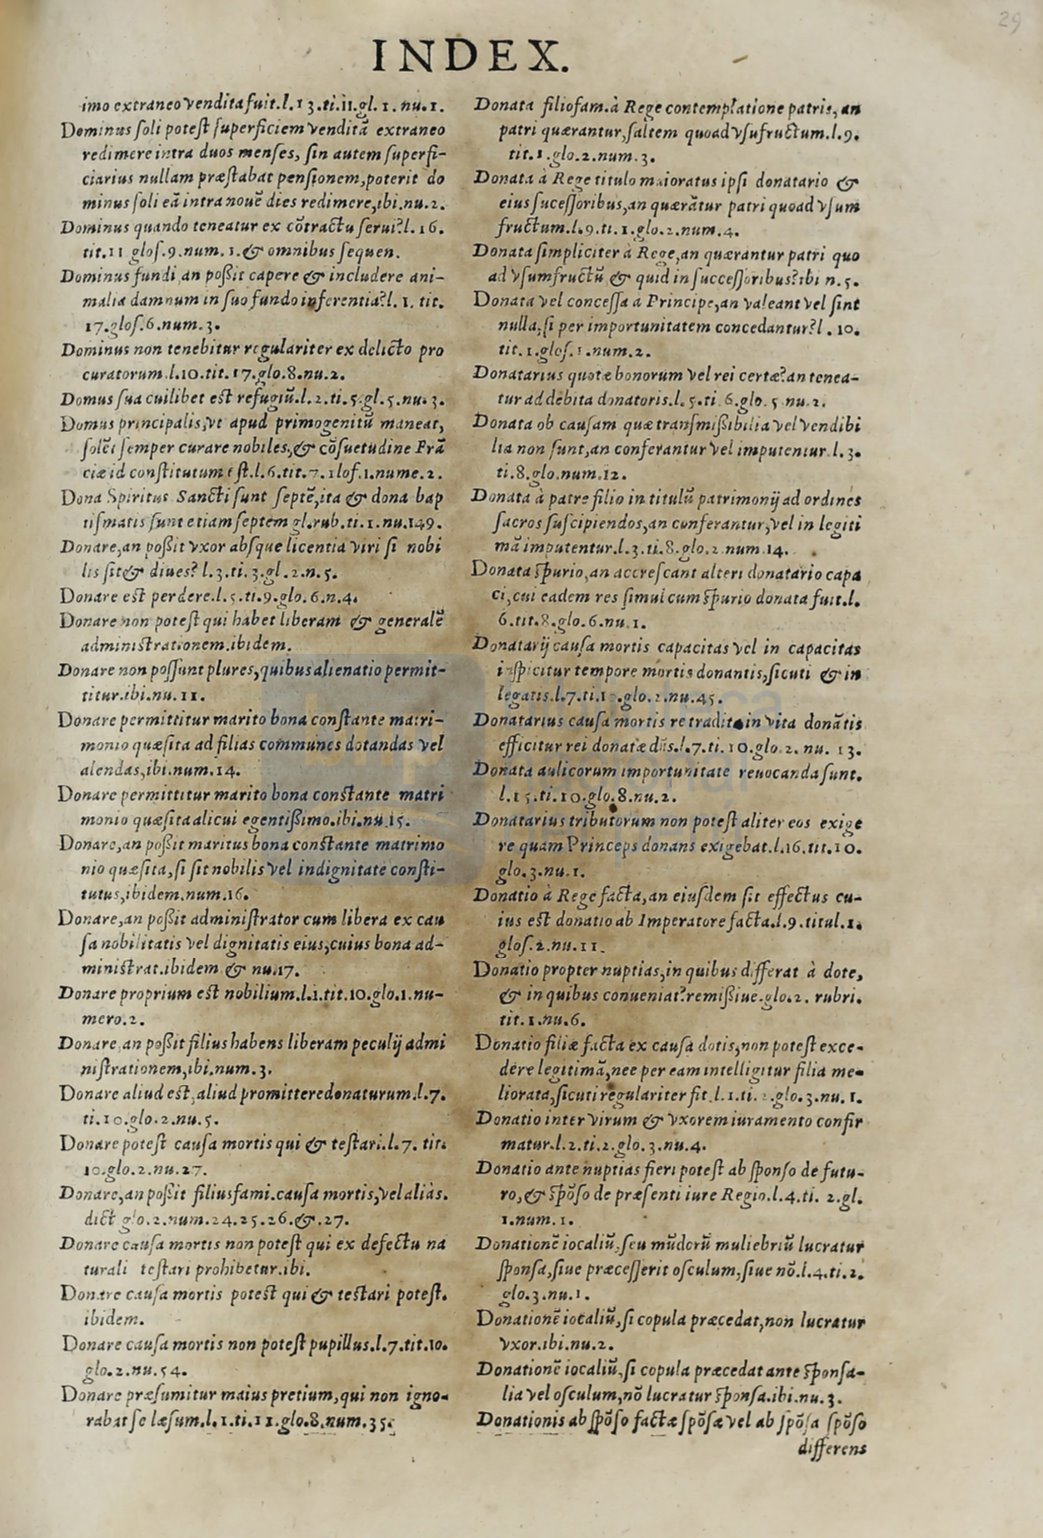 29
INDEX.
imo extraneo vendita fuit.l.13.ti.11.gl.1.nu.1.
Dominus soli potest superficiem venditā extraneo
redimere intra duos menses, sin autem superfi-
ciarius nullam præstabat pensionem,poterit do
minus soli eā intra nouē dies redimere,ibi.nu.2.
Dominus quando teneatur ex cōtractu serui?l.16.
tit.11 glos.9.num.1.& omnibus sequen.
Dominus fundi an poßit capere & includere ani-
malia damnum in suo fundo inferentia?l.1.tit.
17.glos.6.num.3.
Dominus non tenebitur regulariter ex delicto pro
curatorum.l.10.tit.17.glo.8.nu.2.
Domus sua cuilibet est refugiū.l.2.ti.5.gl.5.nu.3.
Domus principalis,vt apud primogenitū maneat,
solēt semper curare nobiles,& cōsuetudine Frā
ciæ id constitutum est.l.6.tit.7.glos.1.nume.2.
Dona Spiritus Sancti sunt septē,ita & dona bap
tismatis sunt etiam septem gl.rub.ti.1.nu.149.
Donare,an poßit vxor absque licentia viri si nobi
lis sit & diues? l.3.ti.3.gl.2.n.5.
Donare est perdere.l.5.ti.9.glo.6.n.4.
Donare non potest qui habet liberam & generalē
administrationem.ibidem.
Donare non possunt plures,quibus alienatio permit-
titur.ibi.nu.11.
Donare permittitur marito bona constante matri-
monio quæsita ad filias communes dotandas vel
alendas,ibi.num.14.
Donare permittitur marito bona constante matri
monio quæsita alicui egentißimo.ibi.nu.15.
Donare,an poßit maritus bona constante matrimo
nio quæsita,si sit nobilis vel indignitate consti-
tutus,ibidem.num.16.
Donare,an poßit administrator cum libera ex cau
sa nobilitatis vel dignitatis eius,cuius bona ad-
ministrat.ibidem & nu.17.
Donare proprium est nobilium.l.1.tit.10.glo.1.nu-
mero.2.
Donare an poßit filius habens liberam peculij admi
nistrationem,ibi.num.3.
Donare aliud est,aliud promittere donaturum.l.7.
ti.10.glo.2.nu.5.
Donare potest causa mortis qui & testari.l.7. tit.
10.glo.2.nu.27.
Donare,an poßit filiusfami.causa mortis,vel aliàs.
dict glo.2.num.24.25.26.&.27.
Donare causa mortis non potest qui ex defectu na
turali testari prohibetur.ibi.
Donare causa mortis potest qui & testari potest.
ibidem.
Donare causa mortis non potest pupillus.l.7.tit.10.
glo.2.nu.54.
Donare præsumitur maius pretium,qui non igno-
rabat se læsum.l.1.ti.11.glo.8.num.35.
Donata filiofam.à Rege contemplatione patris, an
patri quærantur,saltem quoad vsufructum.l.9.
tit.1.glo.2.num.3.
Donata à Rege titulo maioratus ipsi donatario &
eius sucessoribus,an quærātur patri quoad vsum
fructum.l.9.ti.1.glo.2.num.4.
Donata simpliciter à Rege,an quærantur patri quo
ad vsumfructū & quid in successoribus?ibi n.5.
Donata vel concessa à Principe,an valeant vel sint
nulla,si per importunitatem concedantur?l.10.
tit.1.glos.1.num.2.
Donatarius quotæ bonorum vel rei certæ?an tenea-
tur ad debita donatoris.l.5.ti.6.glo.5 nu.2.
Donata ob causam quæ transmißibilia vel vendibi
lia non sunt,an conferantur vel imputentur.l.3.
ti.8.glo.num.12.
Donata à patre filio in titulū patrimonij ad ordines
sacros suscipiendos,an conferantur,vel in legiti
mā imputentur.l.3.ti.8.glo.2 num.14.
Donata spurio,an accrescant alteri donatario capa
ci,cui eadem res simul cum spurio donata fuit.l.
6.tit.8.glo.6.nu.1.
Donatarij causa mortis capacitas vel in capacitas
inspicitur tempore mortis donantis,sicuti & in
legatis.l.7.ti. .glo.2.nu.45.
Donatarius causa mortis re tradita in vita donātis
efficitur rei donatæ dñs.l.7.ti.10.glo.2.nu. 13.
Donata aulicorum importunitate reuocanda sunt.
l.15.ti.10.glo.8.nu.2.
Donatarius tributorum non potest aliter eos exige
re quam Princeps donans exigebat.l.16.tit.10.
glo.3.nu.1.
Donatio à Rege facta,an eiusdem sit effectus cu-
ius est donatio ab Imperatore facta.l.9.titul.1.
glos.2.nu.11.
Donatio propter nuptias,in quibus differat à dote,
& in quibus conueniat?remißiue.glo.2. rubri.
tit.1.nu.6.
Donatio filiæ facta ex causa dotis,non potest exce-
dere legitimā,nee per eam intelligitur filia me-
liorata,sicuti regulariter fit.l.1.ti. .glo.3.nu.1.
Donatio inter virum & vxorem iuramento confir
matur.l.2.ti.2.glo.3.nu.4.
Donatio ante nuptias fieri potest ab sponso de futu-
ro,& spōso de præsenti iure Regio.l.4.ti. 2.gl.
1.num.1.
Donationē iocaliū,seu mūdorū muliebriū lucratur
sponsa,siue præcesserit osculum,siue nō.l.4.ti.2.
glo.3.nu.1.
Donationē iocaliū,si copula præcedat,non lucratur
vxor.ibi.nu.2.
Donationē iocaliū,si copula præcedat ante sponsa-
lia vel osculum,nō lucratur sponsa.ibi.nu.3.
Donationis ab spōso factæ spōsæ vel ab spōsa spōso
differens